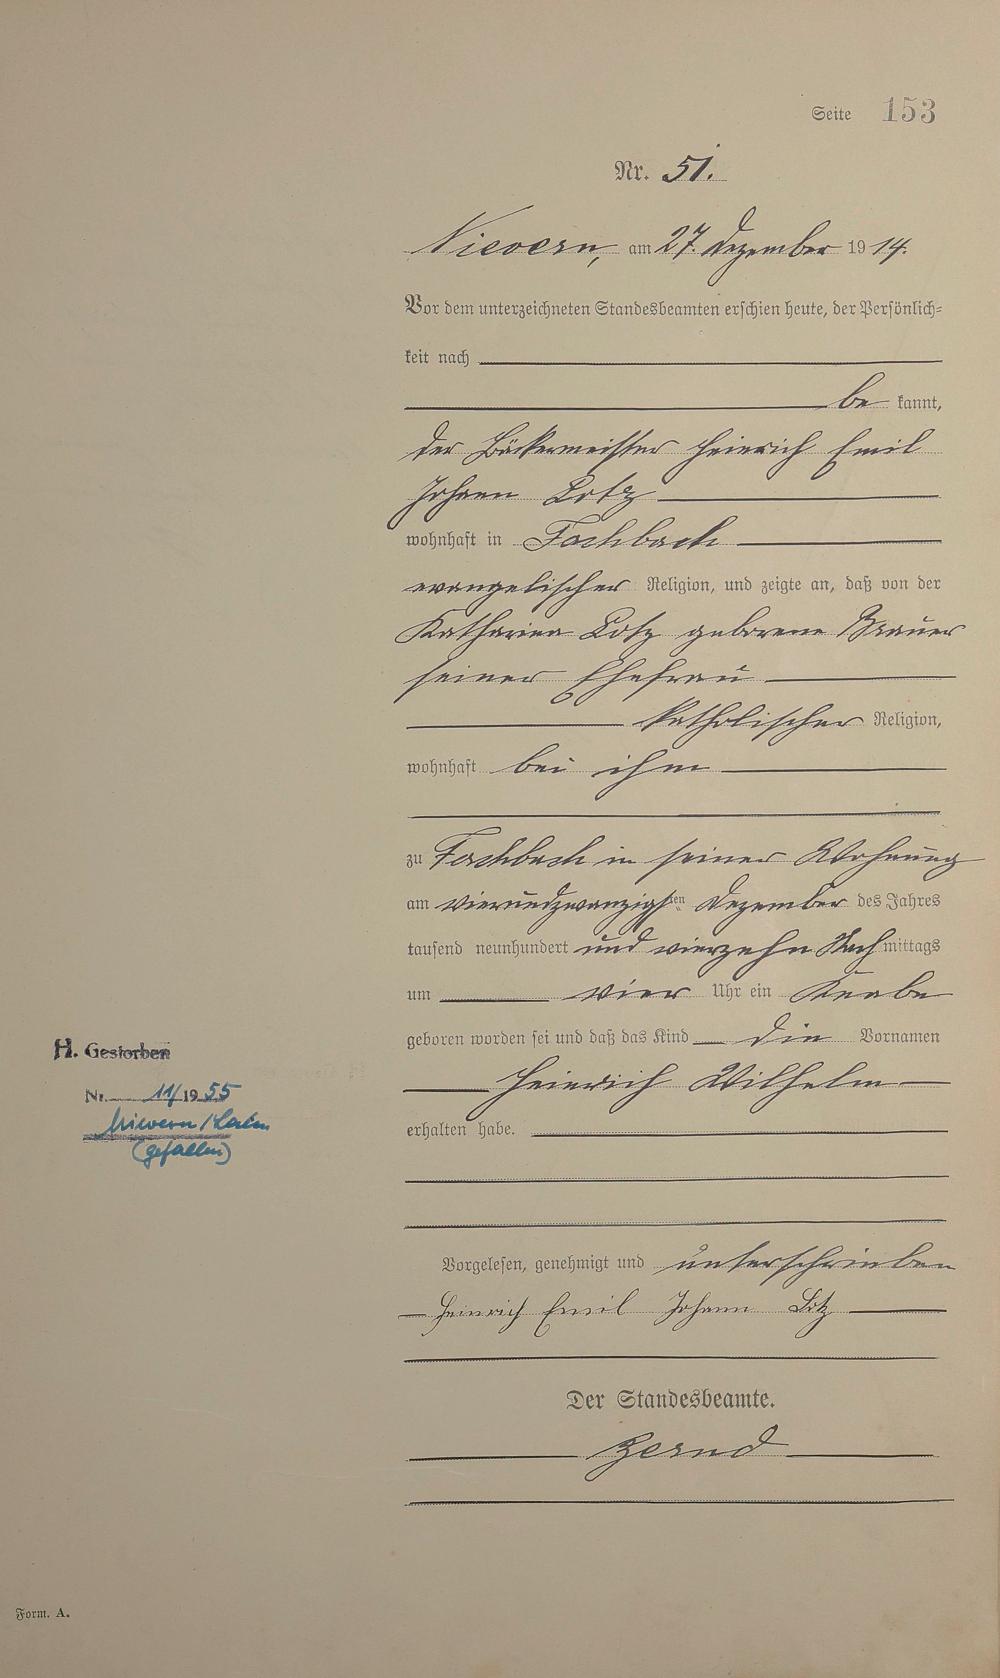 Seite 153
Nr. 51.
Nievern, am 27. Dezember 1914.
Vor dem unterzeichneten Standesbeamten erschien heute, der Persönlich-
keit nach
be kannt,
der Bäckermeister Heinrich Emil
Johann Lotz
wohnhaft in Fachbach
evangelischer Religion, und zeigte an, daß von der
Katharina Lotz geborene Mauer
seiner Ehefrau
katholischer Religion,
wohnhaft bei ihm
zu Fachbach in seiner Wohnung
am vierundzwanzigsten Dezember des Jahres
tausend neunhundert und vierzehn Nachmittags
um vier Uhr ein Knabe
geboren worden sei und daß das Kind die Vornamen
Heinrich Wilhelm
erhalten habe.
H. Gestorben
Nr. 11/1955
Nievern/Lahn
(gefallen)
Vorgelesen, genehmigt und unterschrieben
Heinrich Emil Johann Lotz
Der Standesbeamte.
Zernd
Form. A.